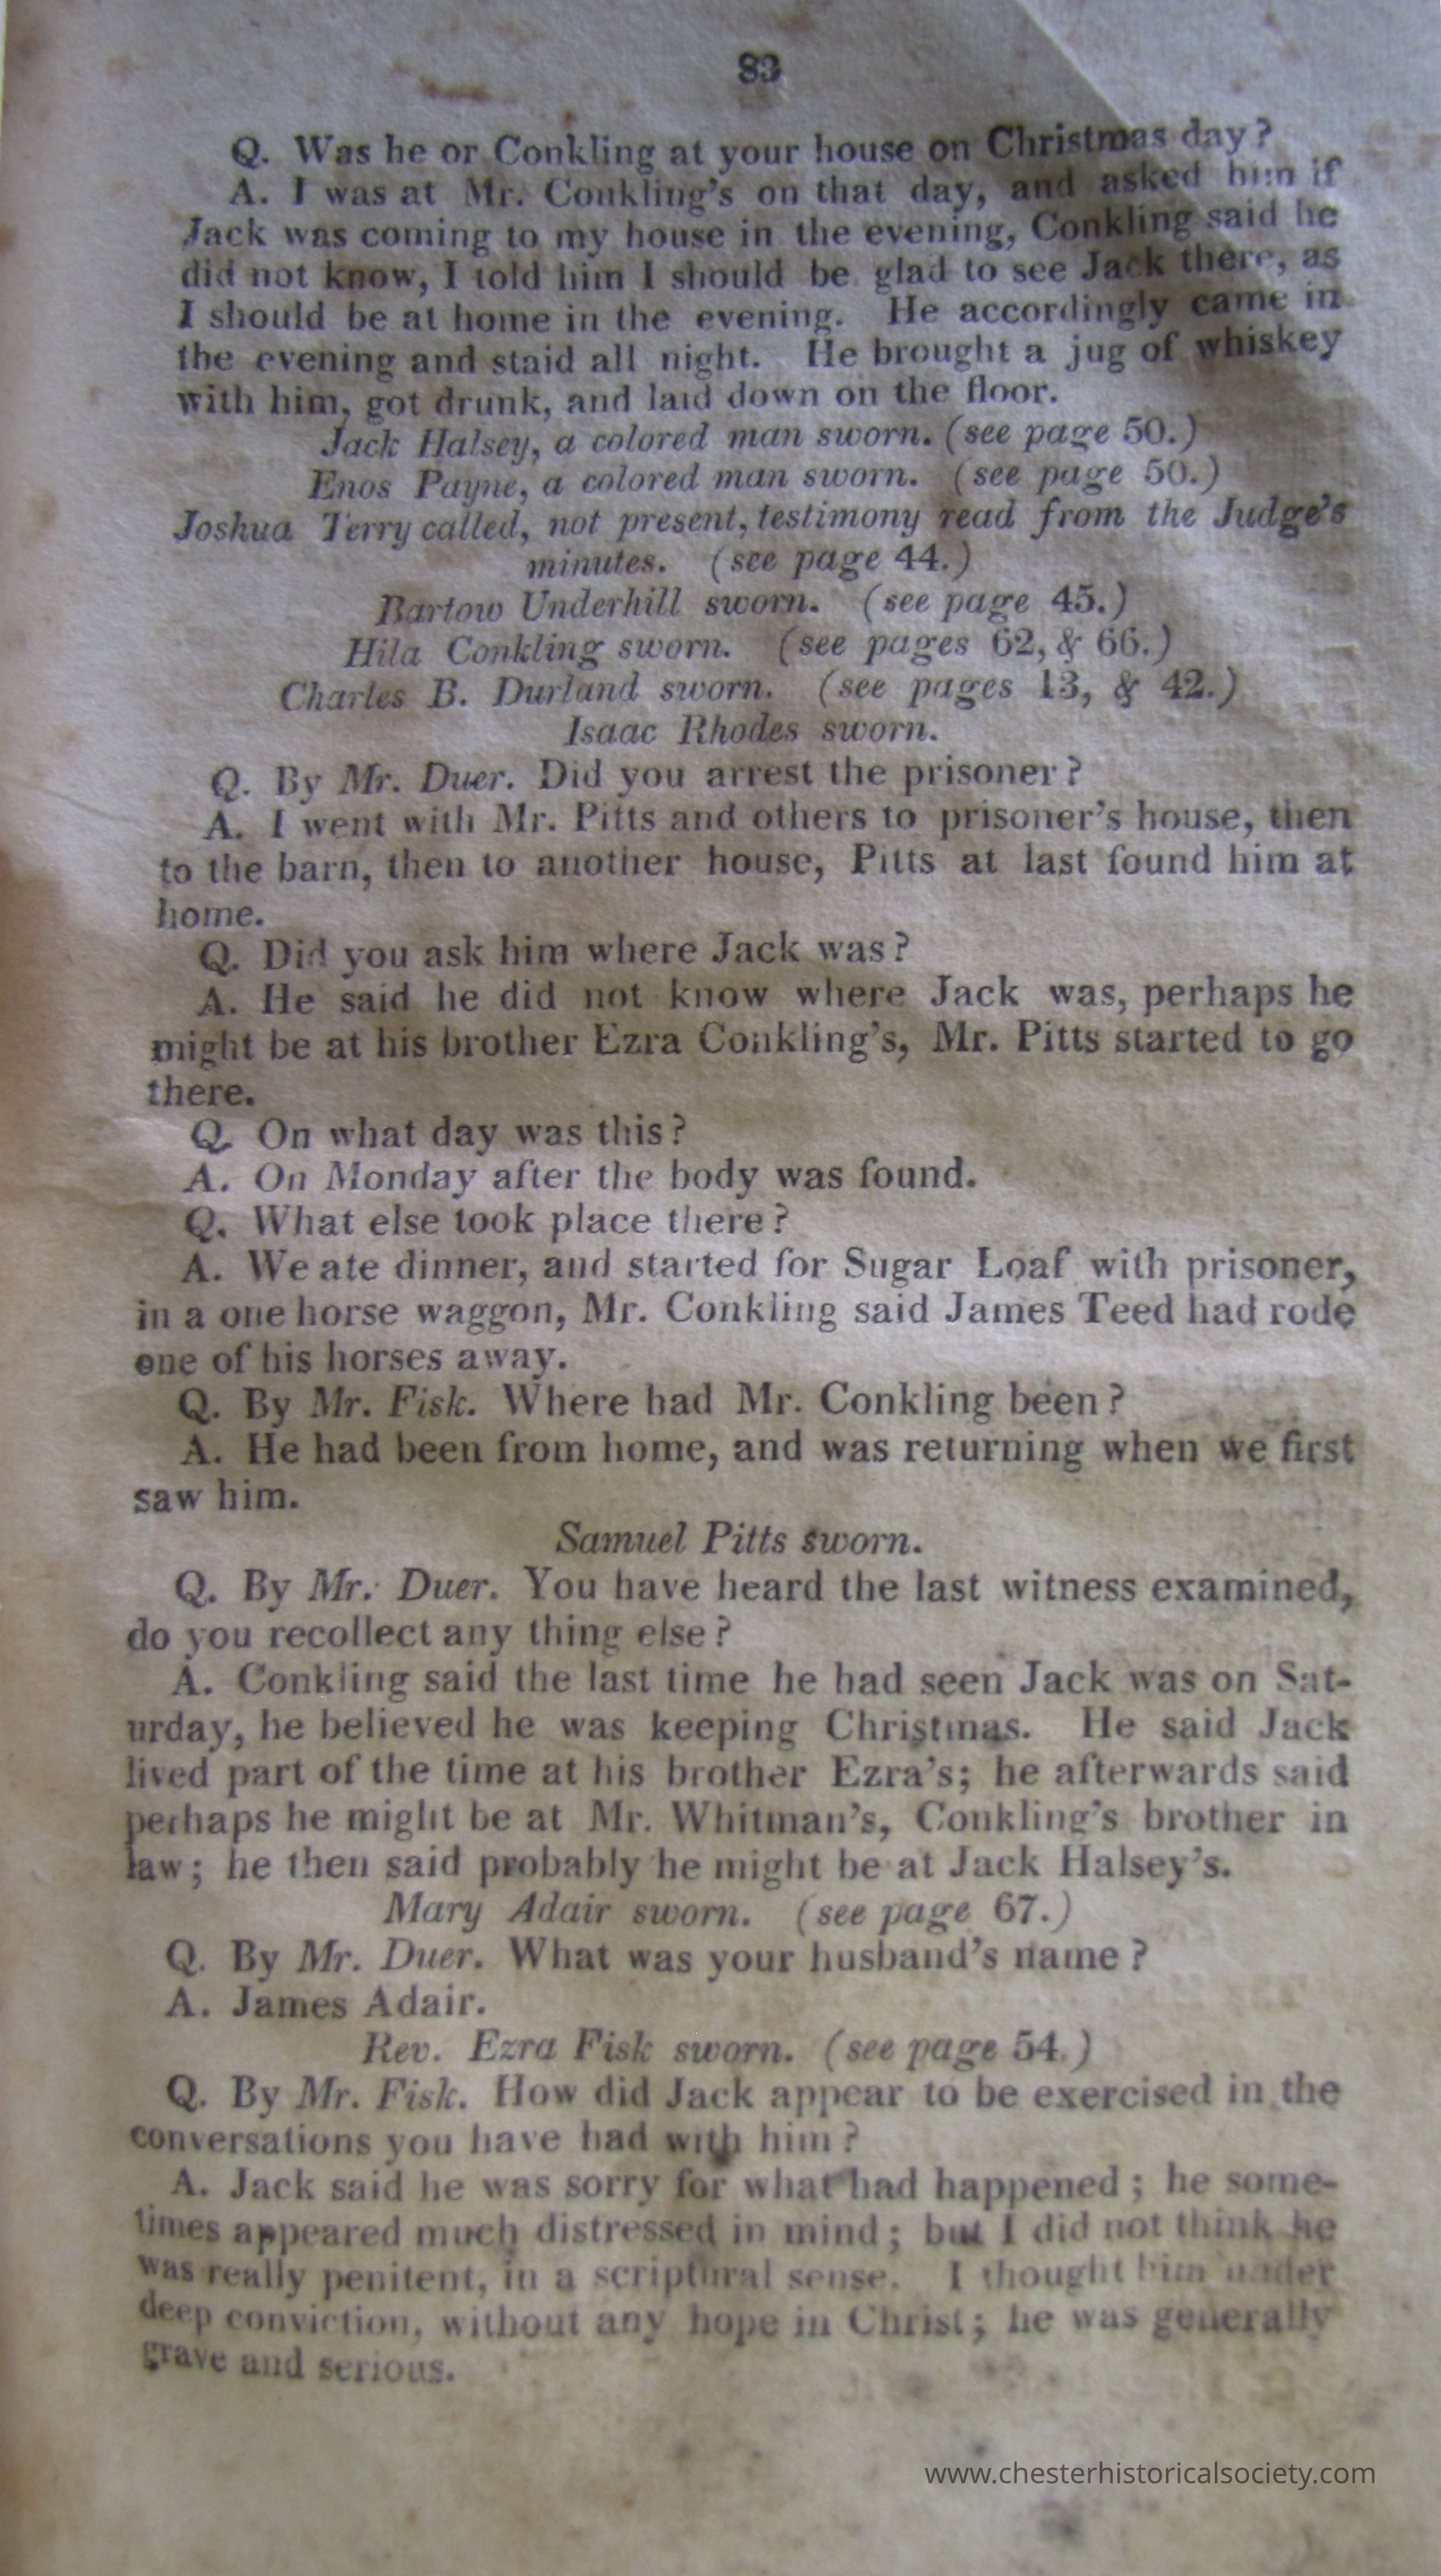 83
Q. Was he or Conkling at your house on Christmas day?
A. I was at Mr. Conkling's on that day, and asked him if
Jack was coming to my house in the evening, Conkling said he
did not know, I told him I should be glad to see Jack there, as
I should be at home in the evening. He accordingly came in
the evening and staid all night. He brought a jug of whiskey
with him, got drunk, and laid down on the floor.
Jack Halsey, a colored man sworn. (see page 50.)
Enos Payne, a colored man sworn. (see page 50.)
Joshua Terry called, not present, testimony read from the Judge's
minutes. (see page 44.)
Bartow Underhill sworn. (see page 45.)
Hila Conkling sworn. (see pages 62, & 66.)
Charles B. Durland sworn. (see pages 13, & 42.)
Isaac Rhodes sworn.
Q. By Mr. Duer. Did you arrest the prisoner?
A. I went with Mr. Pitts and others to prisoner's house, then
to the barn, then to another house, Pitts at last found him at
home.
Q. Did you ask him where Jack was?
A. He said he did not know where Jack was, perhaps he
might be at his brother Ezra Conkling's, Mr. Pitts started to go
there.
Q. On what day was this?
A. On Monday after the body was found.
Q. What else took place there?
A. We ate dinner, and started for Sugar Loaf with prisoner,
in a one horse waggon, Mr. Conkling said James Teed had rode
one of his horses away.
Q. By Mr. Fisk. Where had Mr. Conkling been?
A. He had been from home, and was returning when we first
saw him.
Samuel Pitts sworn.
Q. By Mr. Duer. You have heard the last witness examined,
do you recollect any thing else?
A. Conkling said the last time he had seen Jack was on Sat-
urday, he believed he was keeping Christmas. He said Jack
lived part of the time at his brother Ezra's; he afterwards said
perhaps he might be at Mr. Whitman's, Conkling's brother in
law; he then said probably he might be at Jack Halsey's.
Mary Adair sworn. (see page 67.)
Q. By Mr. Duer. What was your husband's name?
A. James Adair.
Rev. Ezra Fisk sworn. (see page 54.)
Q. By Mr. Fisk. How did Jack appear to be exercised in the
conversations you have had with him?
A. Jack said he was sorry for what had happened; he some-
times appeared much distressed in mind; but I did not think he
was really penitent, in a scriptural sense. I thought him under
deep conviction, without any hope in Christ; he was generally
grave and serious.
www.chesterhistoricalsociety.com